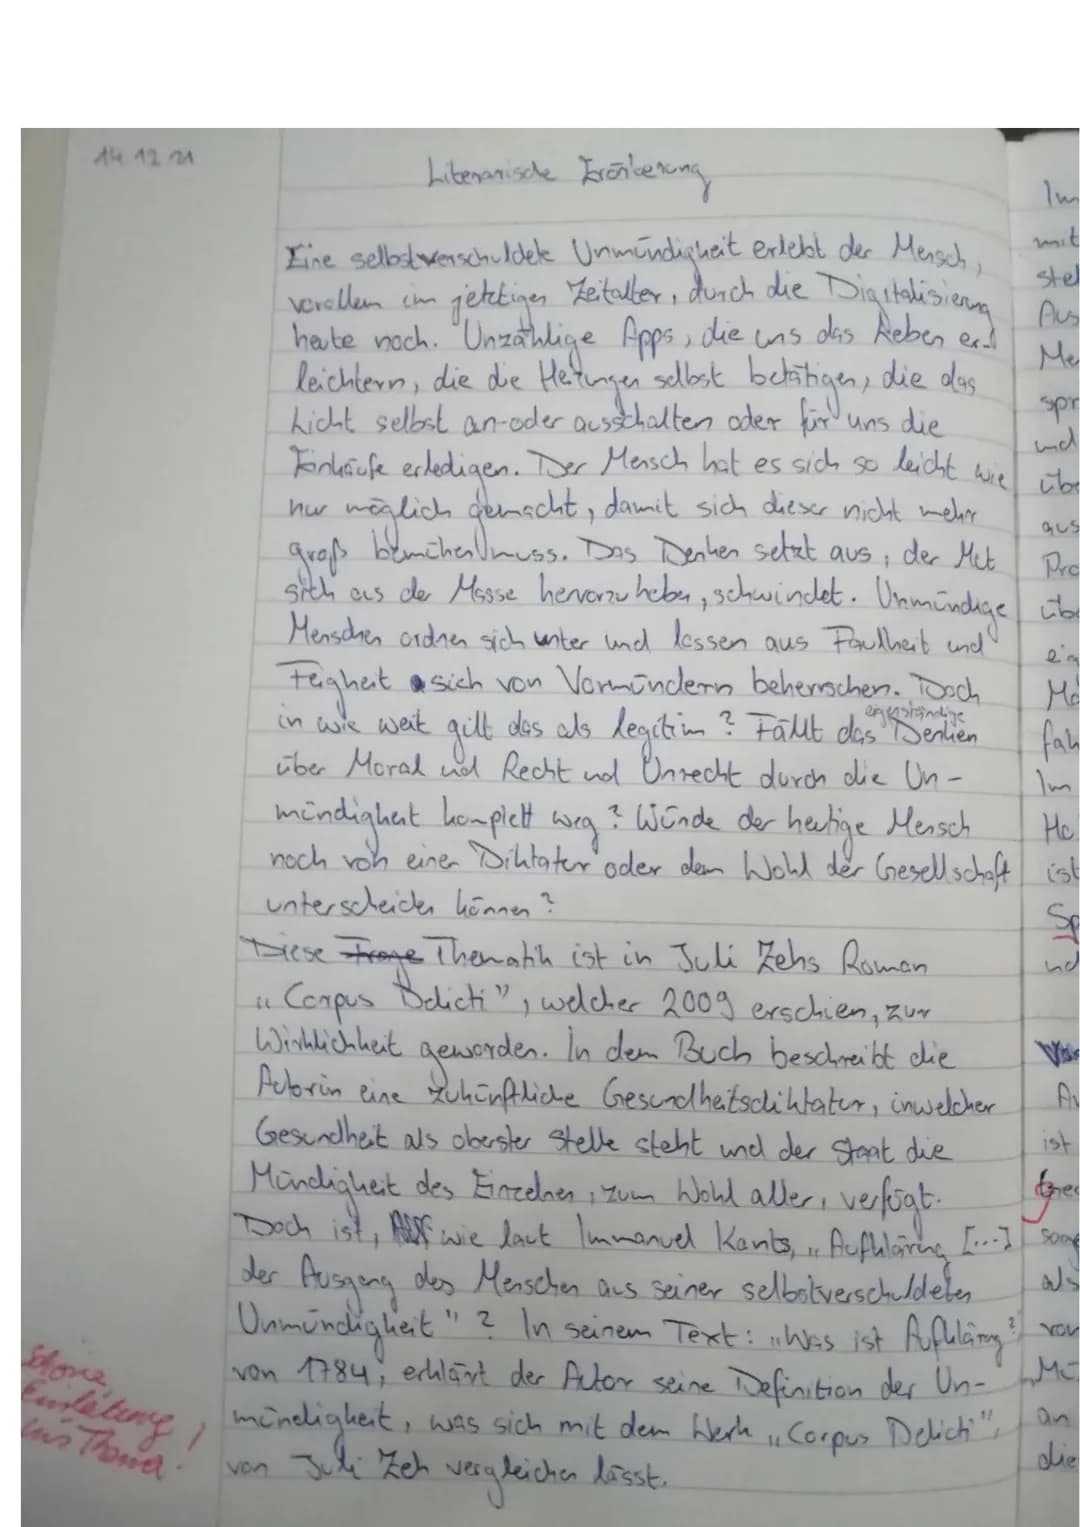 14.12.21
Literarische Erörterung
Eine selbstverschuldete Unmündigkeit erlebt der Mensch,
vorallem im jetztigen Zeitalter, durch die Digitalisierung
heute noch. Unzählige Apps, die uns das Leben er-
leichtern, die die Heizungen selbst betätigen, die das
Licht selbst an-oder ausschalten oder für uns die
Einkäufe erledigen. Der Mensch hat es sich so leicht wie
nur möglich gemacht, damit sich dieser nicht mehr
groß bemühen muss. Das Denken setzt aus, der Mut
sich aus der Masse hervorzuheben, schwindet. Unmündige
Menschen ordnen sich unter und lassen aus Faulheit und
Feigheit sich von Vormündern beherrschen. Doch
in wie weit gilt das als legitim? Fällt das eigenständige Denken
über Moral und Recht und Unrecht durch die Un-
mündigkeit komplett weg? Würde der heutige Mensch
noch von einer Diktatur oder dem Wohl der Gesellschaft
unterscheiden können?
Diese Frage Thematik ist in Juli Zehs Roman
„Corpus Delicti", welcher 2009 erschien, zur
Wirklichkeit geworden. In dem Buch beschreibt die
Autorin eine zukünftliche Gesundheitsdiktatur, inwelcher
Gesundheit als oberster Stelle steht und der Staat die
Mündigkeit des Einzelnen, zum Wohl aller, verfügt.
Doch ist, wie laut Immanuel Kants, „Aufklärung [...]
der Ausgang des Menschen aus seiner selbstverschuldeten
Unmündigkeit" ? In seinem Text: „Was ist Aufklärung?"
von 1784, erklärt der Autor seine Definition der Un-
mündigkeit, was sich mit dem Werk „Corpus Delicti",
von Juli Zeh vergleichen lässt.
Schöne
Einleitung
ins Thema!
mit
ist
als
an
die